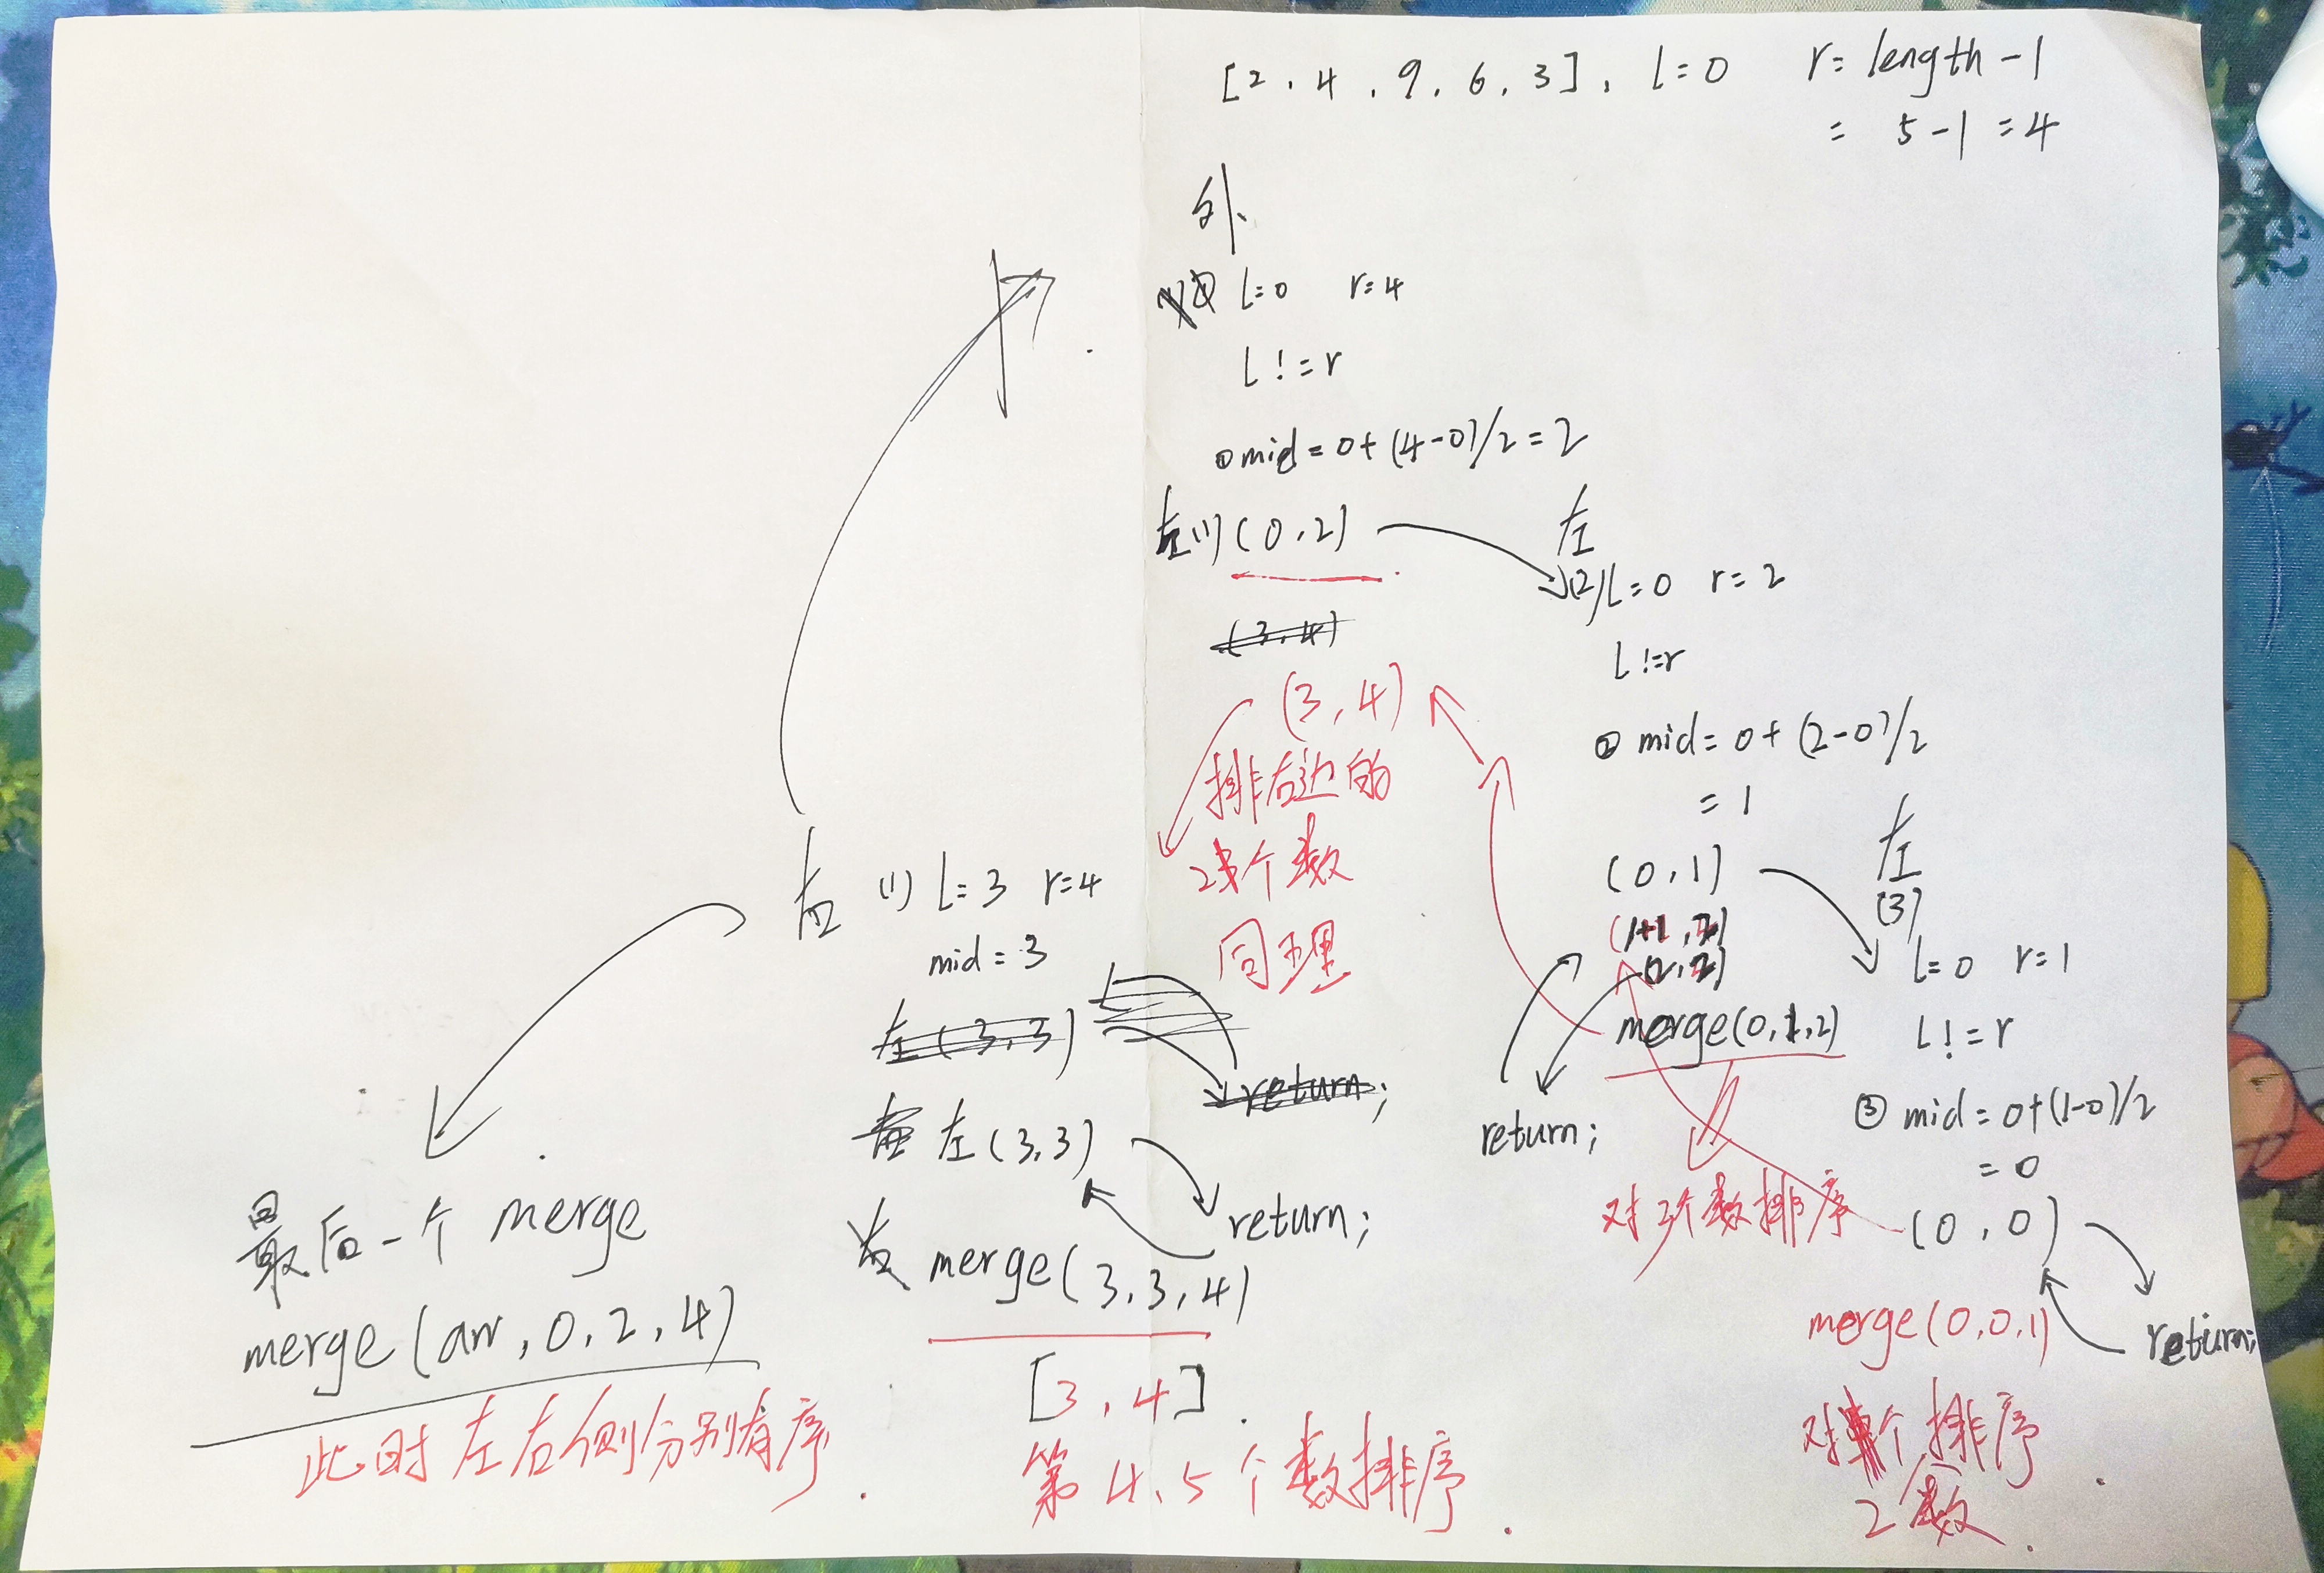 [2, 4, 9, 6, 3], l=0 r=length-1
= 5-1=4
外
l=0 r=4
l!=r
①mid=0+(4-0)/2=2
左(1)(0,2)
(3,4)
(3,4)
排右边的
2个数
同理
左
(2)l=0 r=2
l!=r
②mid=0+(2-0)/2
=1
(0,1)
(1+1,2)
(2,2)
merge(0,1,2)
return;
对3个数排序
左
(3)
l=0 r=1
l!=r
③mid=0+(1-0)/2
=0
(0,0)
return;
merge(0,0,1)
对个排序
2数
右(1)l=3 r=4
mid=3
左(3,3)
return;
左(3,3)
return;
右merge(3,3,4)
[3,4]
第4、5个数排序
最后一个merge
merge(arr,0,2,4)
此时左右侧分别有序